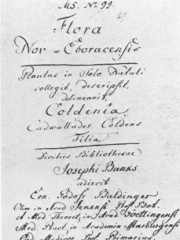 MS. No. 99.
Flora
Nov-Eboracensis
Plantas in Solo Natali
collegit, descripsit,
delineavit,
Coldenia
Cadwallader Coldens
Filia
Divitis Bibliothecae
Josephi Banks
adjecit
Ern. Godofr. Baldinger
Olim in Acad. Jenens. Prof. Bot.
et Med. Theoret. in Acad. Goettingensi
Med. Pract. in Academia Marburgensi
Med. Prof. Primarius